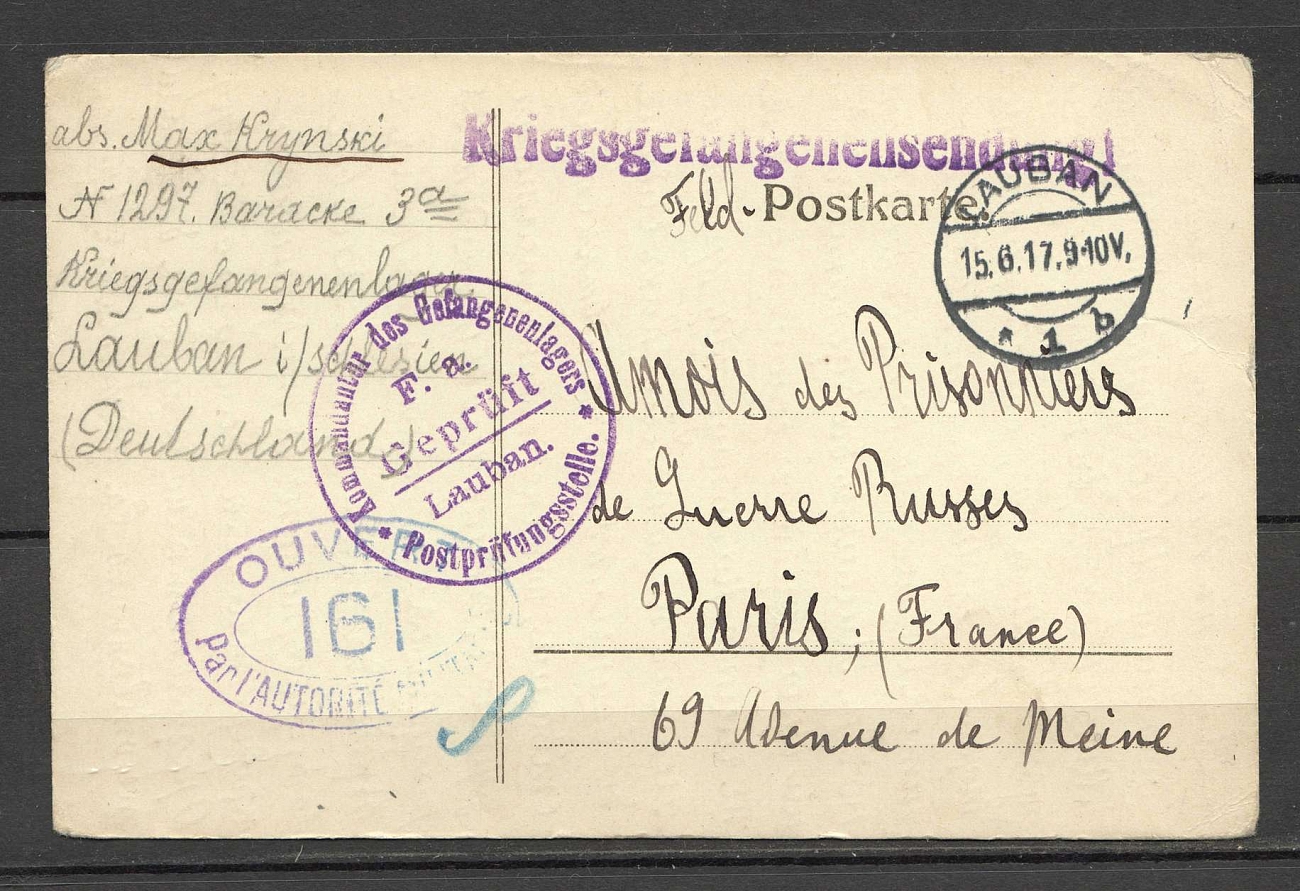 abs. Max Krynski
N 1297. Baracke 3a
Kriegsgefangenenlager
Lauban i/Schlesien
(Deutschland)
Kriegsgefangenensendung
Feld-Postkarte.
LAUBAN
15.6.17.9-10V.
* 1 b
Kommandantur des Gefangenenlagers
F. a.
Geprüft
Lauban.
* Postprüfungsstelle. *
OUVERT
161
Par l'AUTORITÉ MILITAIRE
Amois des Prisonniers
de Guerre Russes
Paris, (France)
69 Avenue de Meine